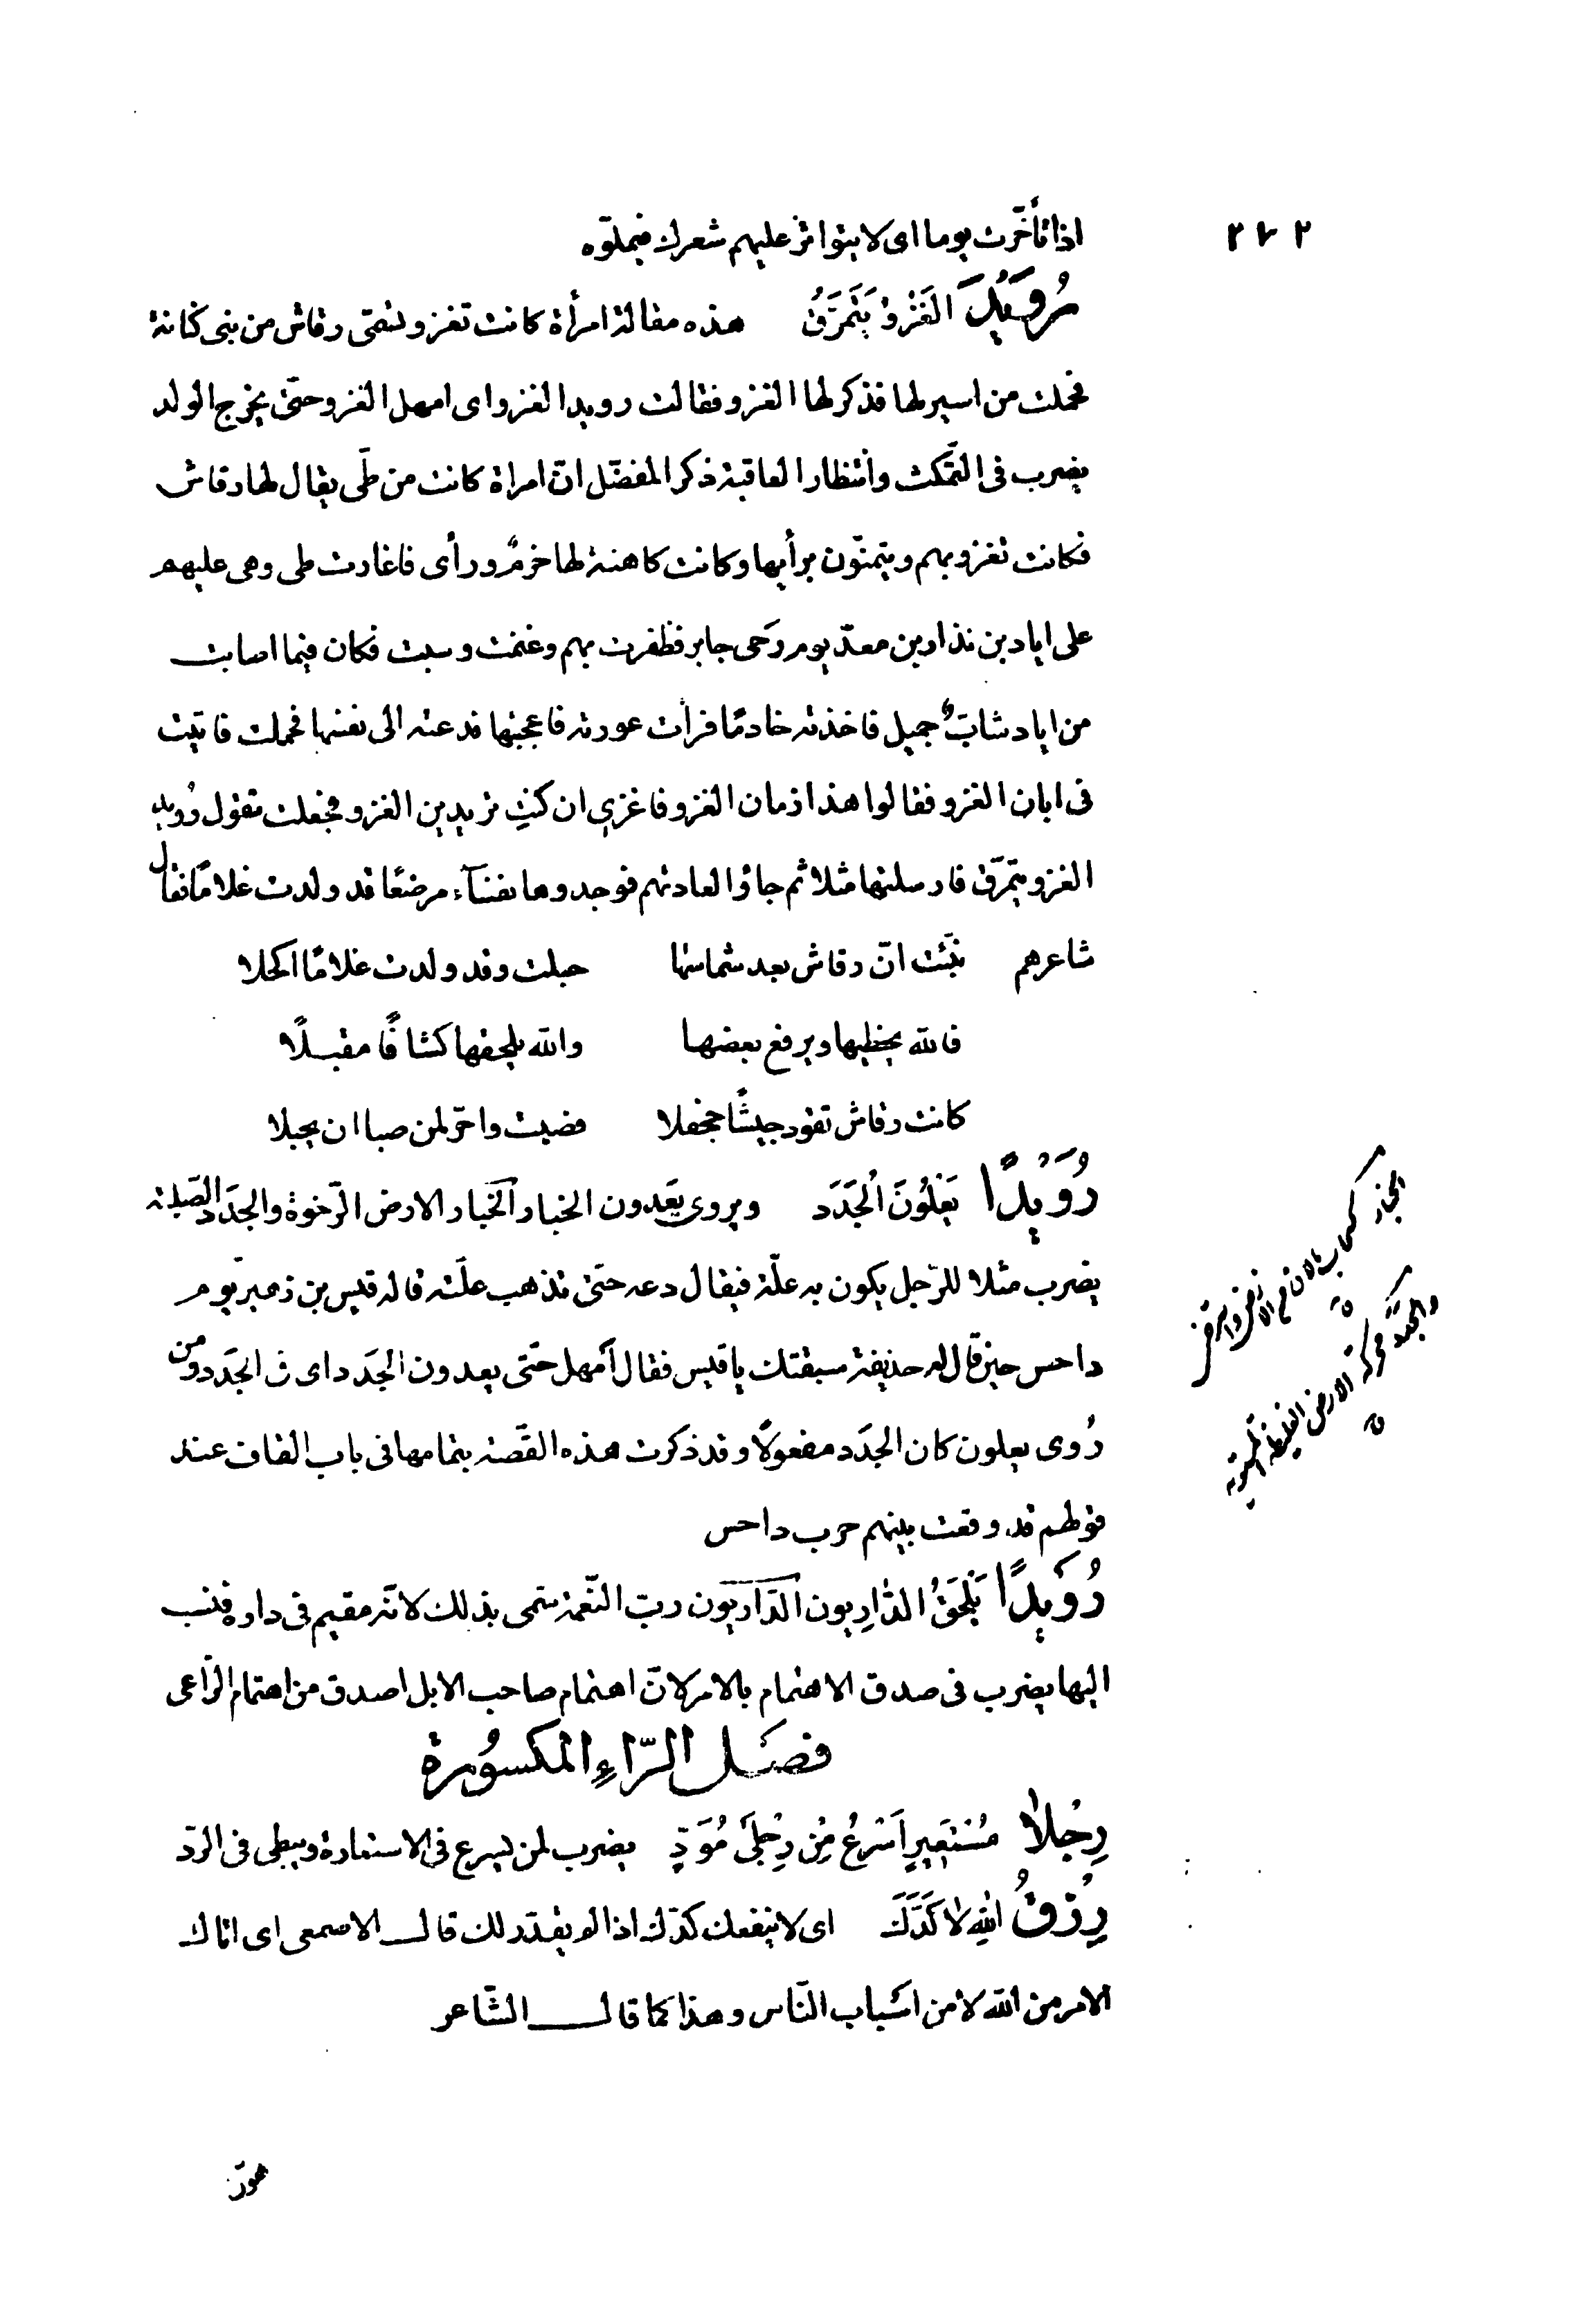 ٢٧٢
اذا تأخّرت يوما اى لا يتواتر عليهم شعرك فيملّوه
رُوَيْدَ الغَزْوَ يَتَمَرَّقُ هذه مقالة امرأة كانت تغزو تسمّى رقاش من بنى كنانة
فحملت من اسير لها فذكر لها الغزو فقالت رويد الغزو اى امهل الغزو حتّى يخرج الولد
يضرب فى التمكّث وانتظار العاقبة ذكر المفضّل انّ امراة كانت من طَى يقال لها رقاش
فكانت تغزو بهم ويتمنّون برأيها وكانت كاهنة لها حزمٌ ورأى فاغارت طى وهى عليهم
على اياد بن نزار بن معدّ يوم رَحى جابر فظفرت بهم وغنمت وسبت فكان فيما اصابت
من اياد شابٌّ جميل فاخذته خادمًا فرأت عورته فاعجبتها فدعته الى نفسها فحملت فاتيت
فى ابان الغزو فقالوا هذا زمان الغزو فاغزى ان كنتِ تريدين الغزو فجعلت تقول رُويد
الغزو يتمرّق فارسلتها مثلا ثم جاؤا لعادتهم فوجدوها نفسآء مرضعًا قد ولدت غلامًا فقال
شاعرهم نبّئت انّ رقاش بعد شماسها حبلت وقد ولدت غلامًا اكحلا
فالله يحظيها ويرفع بعضها والله يلحقها كشافًا مقبلًا
كانت رقاش تقود جيشًا جحفلا فصبت واحرّ لمن صبا ان يحبلا
رُوَيْدًا يَعْلُونَ الْجَدَدَ ويروى يَعدون الخبار الخبار الارض الرّخوة والجدَد الصّلبة
يضرب مثلا للرّجل يكون به علّة فيقال دعه حتّى تذهب علّته قاله قيس بن زهير يوم
داحس حين قال له حذيفة سبقتك يا قيس فقال أمهل حتّى يعدون الجَدد اى فى الجَدد ومن
رُوى يعلون كان الجدَد مفعولًا وقد ذكرت هذه القصّة بتمامها فى باب القاف عند
قولهم قد وقعت بينهم حرب داحس
رُوَيْدًا يَلْحَقُ الدَّارِيون الدّاريون ربّ النّعمة سمّى بذلك لانّه مقيم فى داره فنسب
اليها يضرب فى صدق الاهتمام بالامر لانّ اهتمام صاحب الابل اصدق من اهتمام الرّاعى
فصل الرّاءِ المكسُورة
رِجْلَا مُسْتَعِيرٍ اَسْرَعُ مِنْ رِجْلَىْ مُؤَدٍّ يضرب لمن يسرع فى الاستعارة ويبطى فى الردّ
رِزْقُ اللهِ لا كَدُّكَ اى لا ينفعك كدّك اذا لم يقدّر لك قال الاصمعى اى اتاك
الامر من الله لا من اسباب النّاس وهذا كما قال الشّاعر
هون
الخبار كسحاب مالان من الارض واسترخى
والجدد محركة الارض الغليظة المستوية